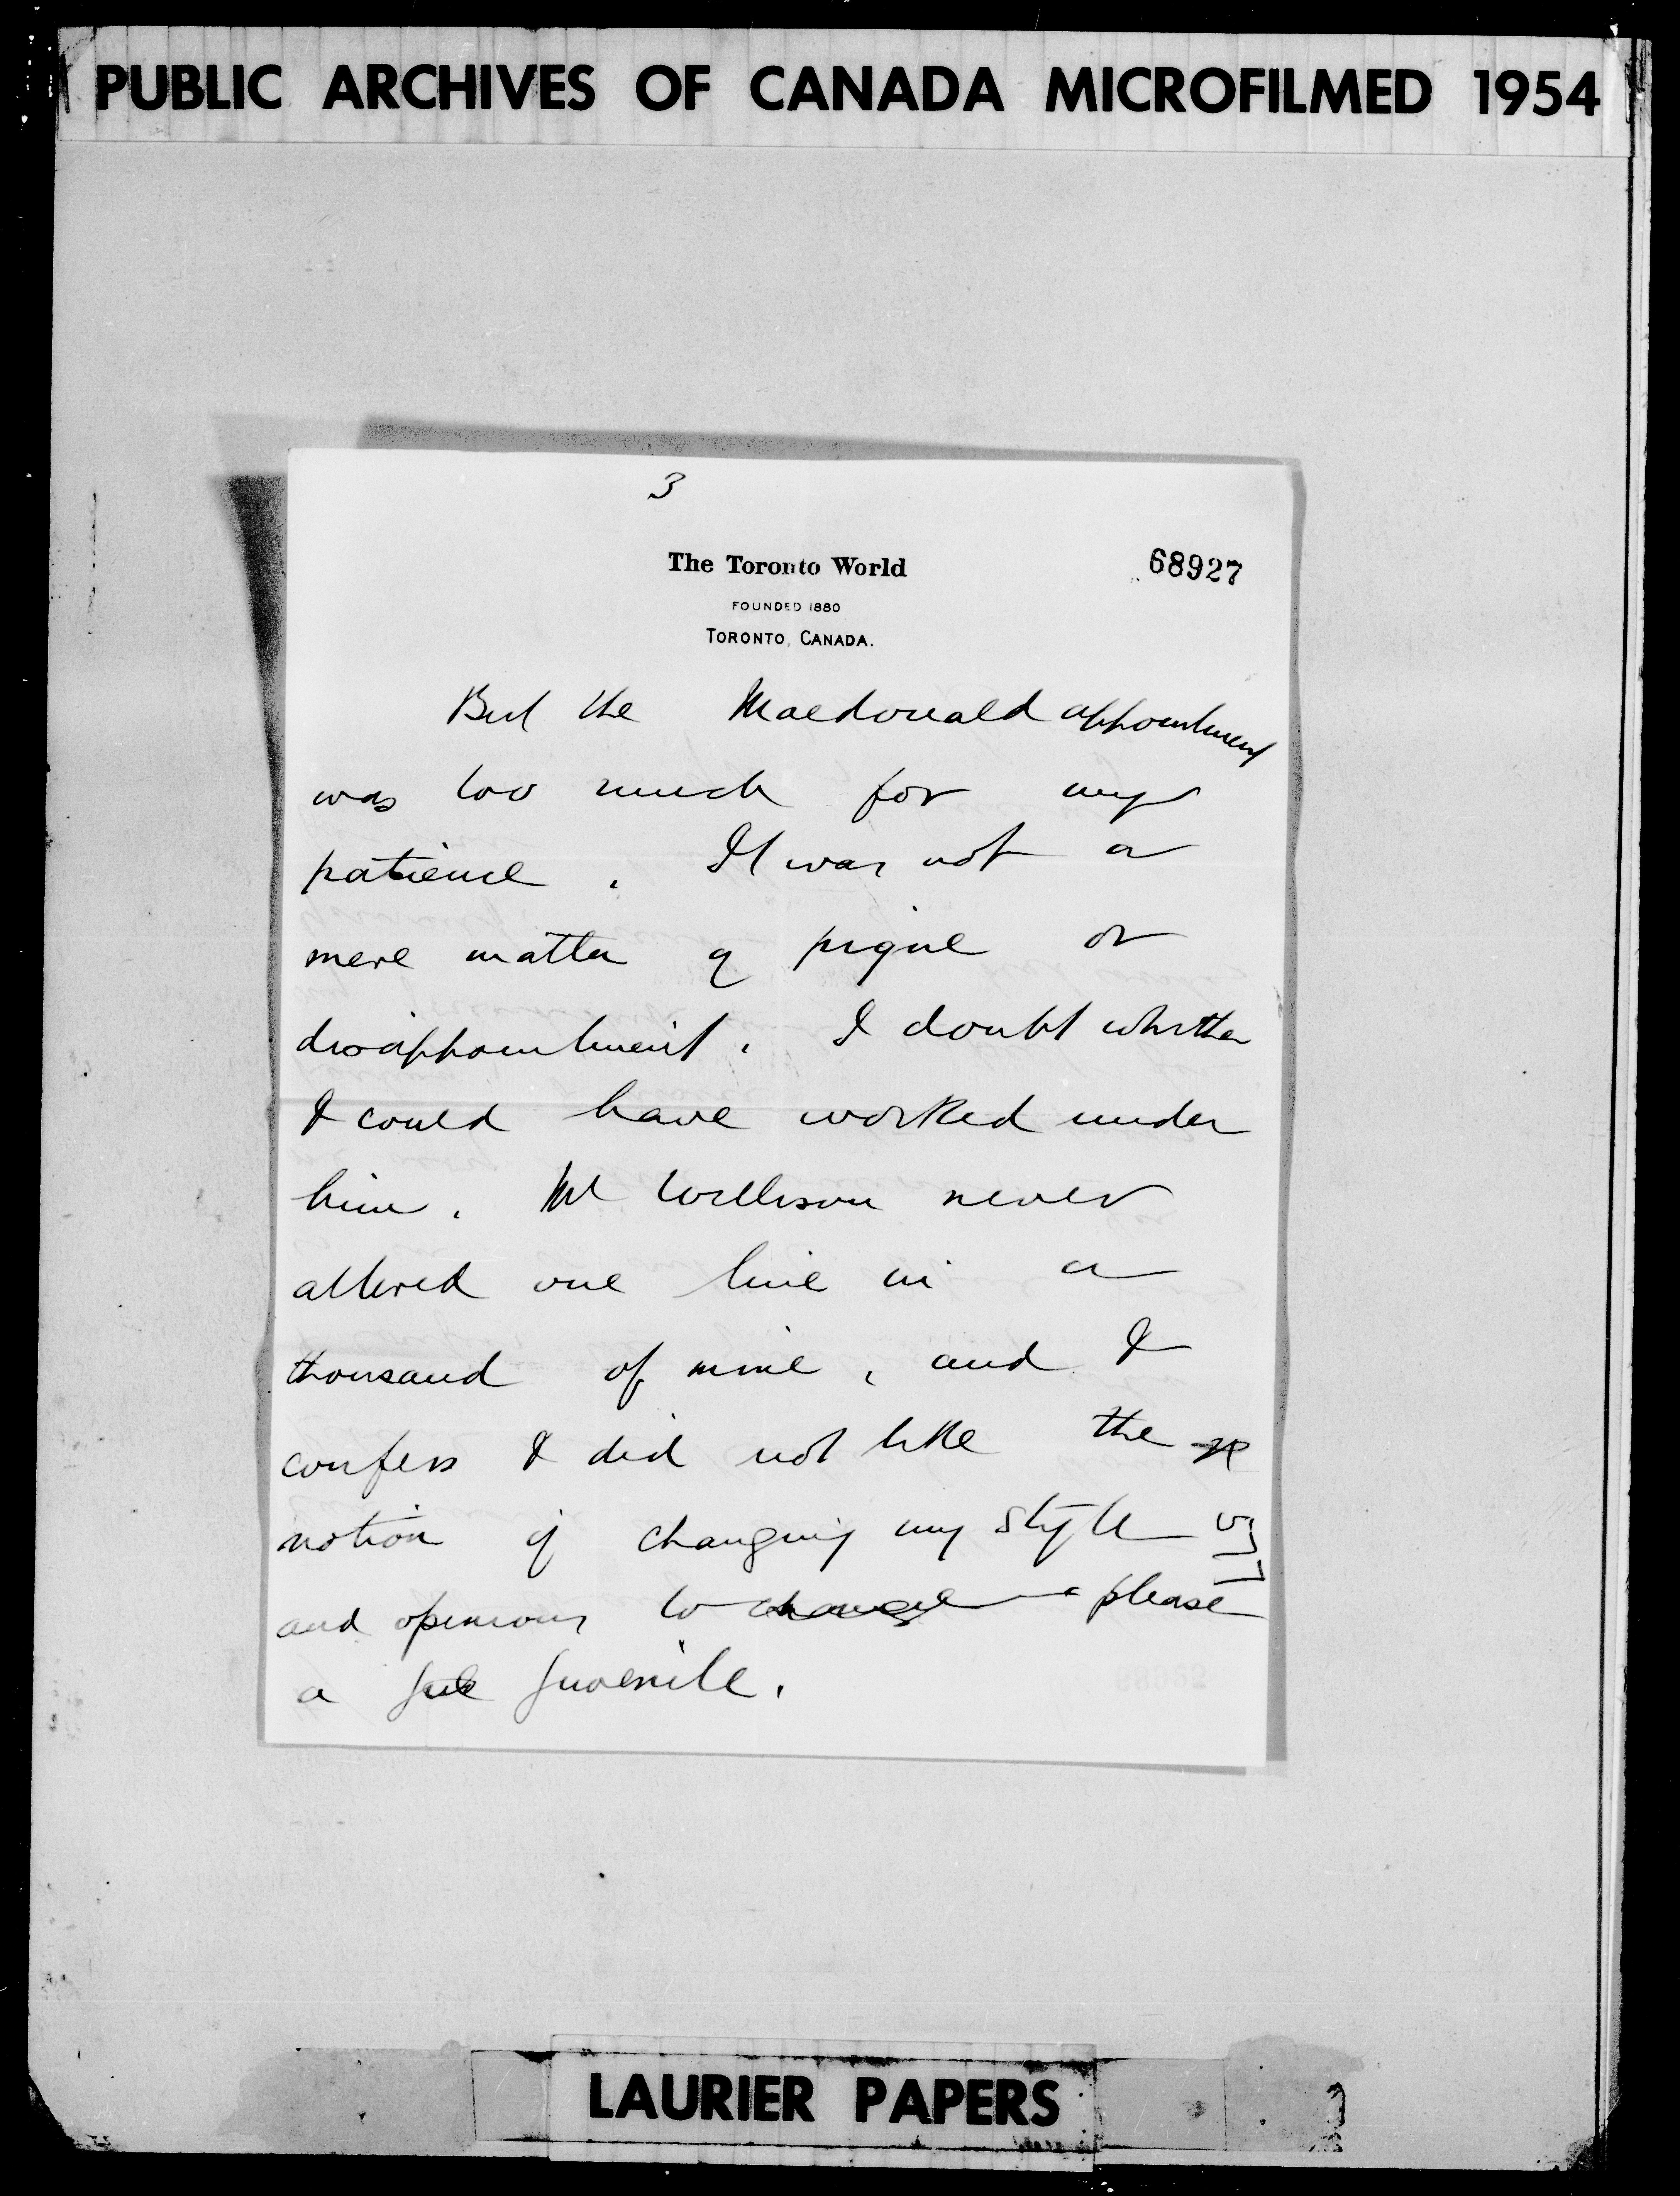 PUBLIC ARCHIVES OF CANADA MICROFILMED 1954
3
The Toronto World
68927
FOUNDED 1880
TORONTO, CANADA.
But the Macdonald appointment
was too much for my
patience. It was not a
mere matter of pique or
disappointment. I doubt whether
I could have worked under
him. Mr Willison never
altered one line in a
thousand of mine, and I
confess I did not like the
notion of changing my style
and opinions to change please
a juve juvenile.
LAURIER PAPERS